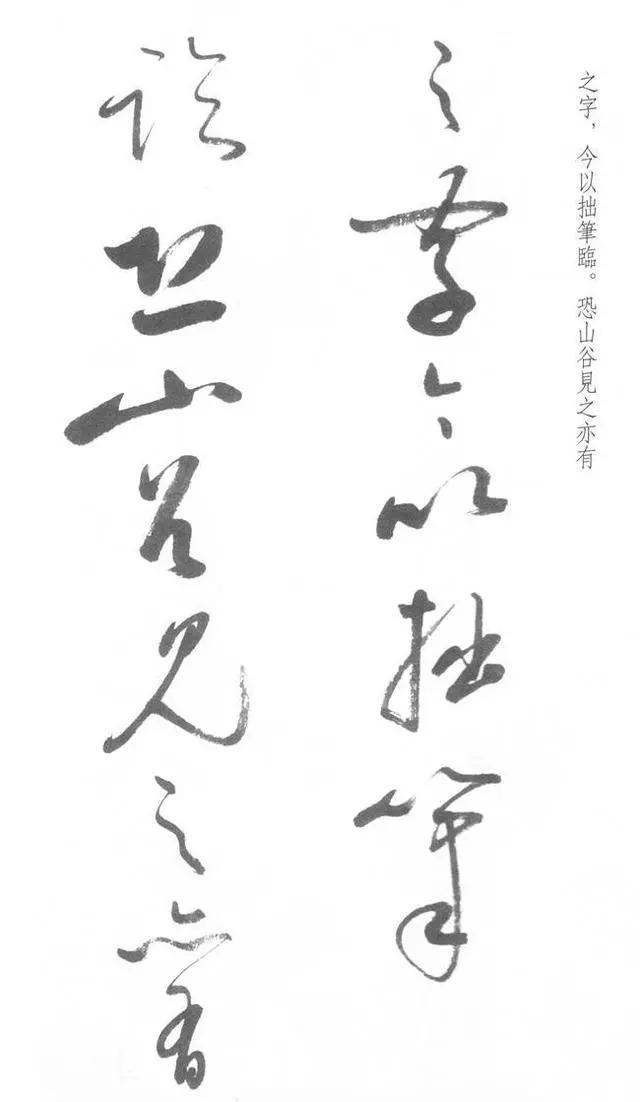 之字，今以拙筆臨。恐山谷見之亦有
之字今以拙筆
臨恐山谷見之亦有